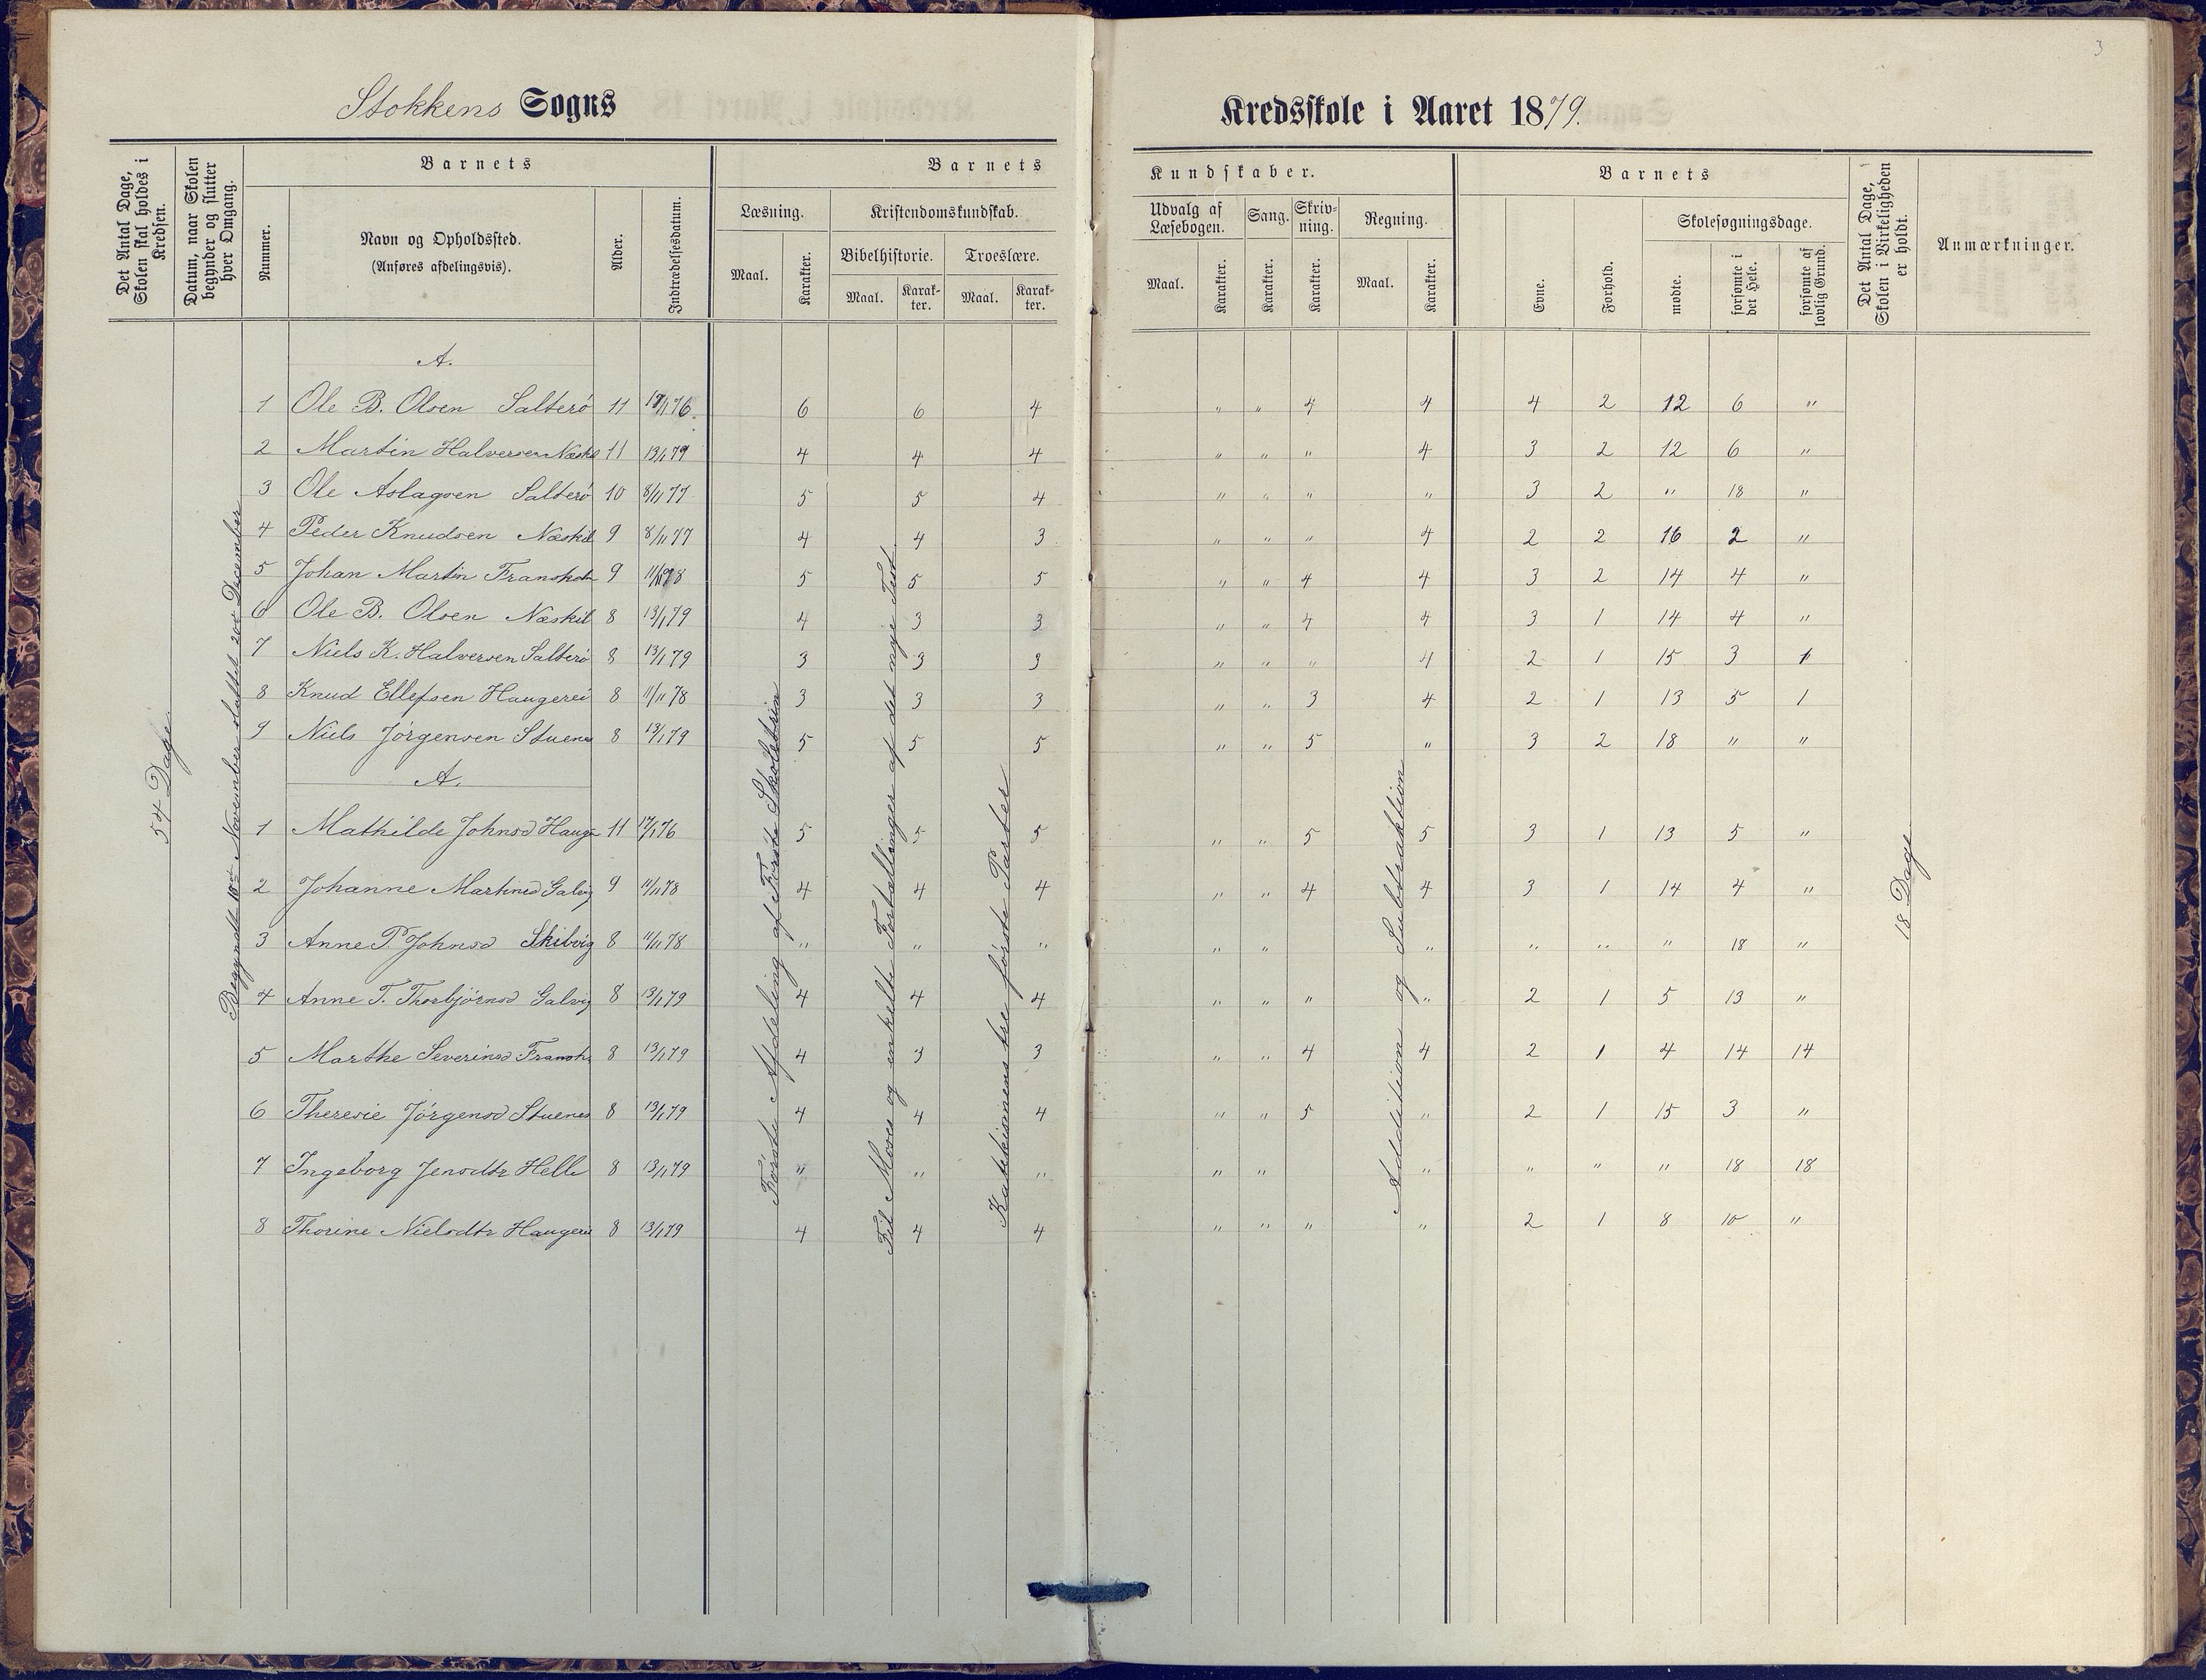 3
Stokkens Sogns Kredsskole i Aaret 1879.
Det Antal Dage, Skolen skal holdes i Kredsen.
Datum, naar Skolen begynder og slutter hver Omgang.
Barnets
Nummer.
Navn og Opholdssted.
(Anføres afdelingsvis).
Alder.
Indtrædelsesdatum.
Barnets Kundskaber.
Læsning.
Maal. Karakter.
Kristendomskundskab.
Bibelhistorie.
Maal. Karak-ter.
Troeslære.
Maal. Karak-ter.
Udvalg af Læsebogen.
Maal. Karakter.
Sang.
Karakter.
Skriv-ning.
Karakter.
Regning.
Maal. Karakter.
Barnets
Evne.
Forhold.
Skolesøgningsdage.
mødte.
forsømte i det Hele.
forsømte af lovlig Grund.
Det Antal Dage, Skolen i Virkeligheden er holdt.
Anmærkninger.
54 Dage.
Begyndte 18de November sluttet 20de December
Første Afdeling af Første Skoletrin
Til Moses og enkelte Fortællinger af det nye Test.
Katekismens tre første Parter
Addition og Subtraktion
18 Dage.
A.
1 Ole B. Olsen Salterö 11 6 6 4 " " 4 4 4 2 12 6 "
2 Martin Halversen 11 13/1 79 4 4 4 " " " 4 3 2 12 6 "
3 Ole Aslagsen Salterö 10 8/11 77 5 5 4 " " " " 3 2 " 18 "
4 Peder Knudsen Næskil 9 8/11 77 4 4 3 " " " 4 2 2 16 2 "
5 Johan Martin 9 5 5 5 " " 4 4 3 2 14 4 "
6 Ole B. Olsen Næskil 8 13/1 79 4 3 3 " " 4 4 3 1 14 4 "
7 Niels K. Halversen Salterö 8 13/1 79 3 3 3 " " " 4 2 1 15 3 1
8 Knud Ellefsen Haugerei 8 11/11 78 3 3 3 " " 3 4 2 1 13 5 1
9 Niels Jörgensen Stuenes 8 13/1 79 5 5 5 " " 5 " 3 2 18 " "
A.
1 Mathilde Johnsd 11 17/1 76 5 5 5 " " 5 5 3 1 13 5 "
2 Johanne Martinsd Galvig 9 11/11 78 4 4 4 " " 4 4 3 1 14 4 "
3 Anne P. Johnsd Skibvig 8 11/11 78 " " " " " " " " " 18 "
4 Anne T. Thorbjörnsd Galvig 8 13/1 79 4 4 4 " " " " 2 1 5 13 "
5 Marthe Severinsd 8 13/1 79 4 3 3 " " 4 4 2 1 4 14 14
6 Theresie Jörgensd Stuenes 8 13/1 79 4 4 4 " " 5 " 2 1 15 3 "
7 Ingeborg Jensdtr Helle 8 13/1 79 " " " " " " " " " 18 18
8 Thorine Nielsdtr Haugerei 8 13/1 79 4 4 4 " " " " 2 1 8 10 "